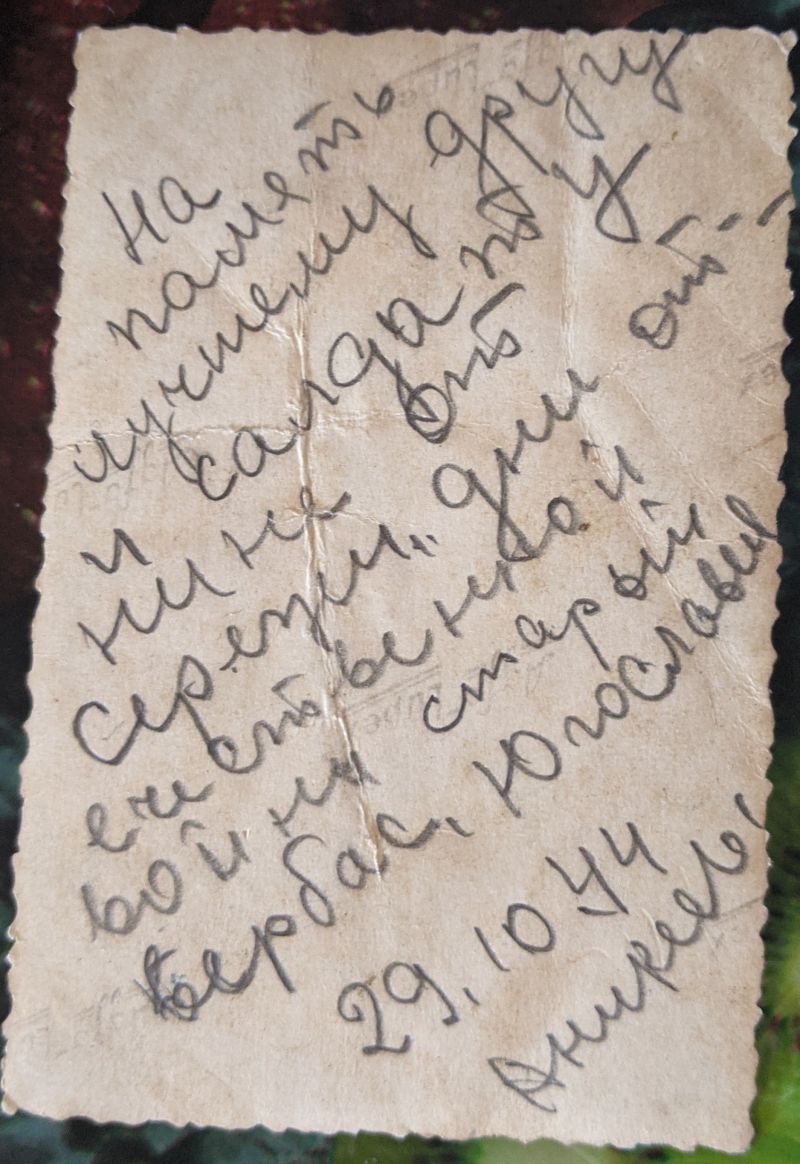 На
паметь
лучшему другу
и салдату
Нине от
Серези, дни от-
ечественной
войни старый
Вербас, Югославия
29.10 44
Аникеев